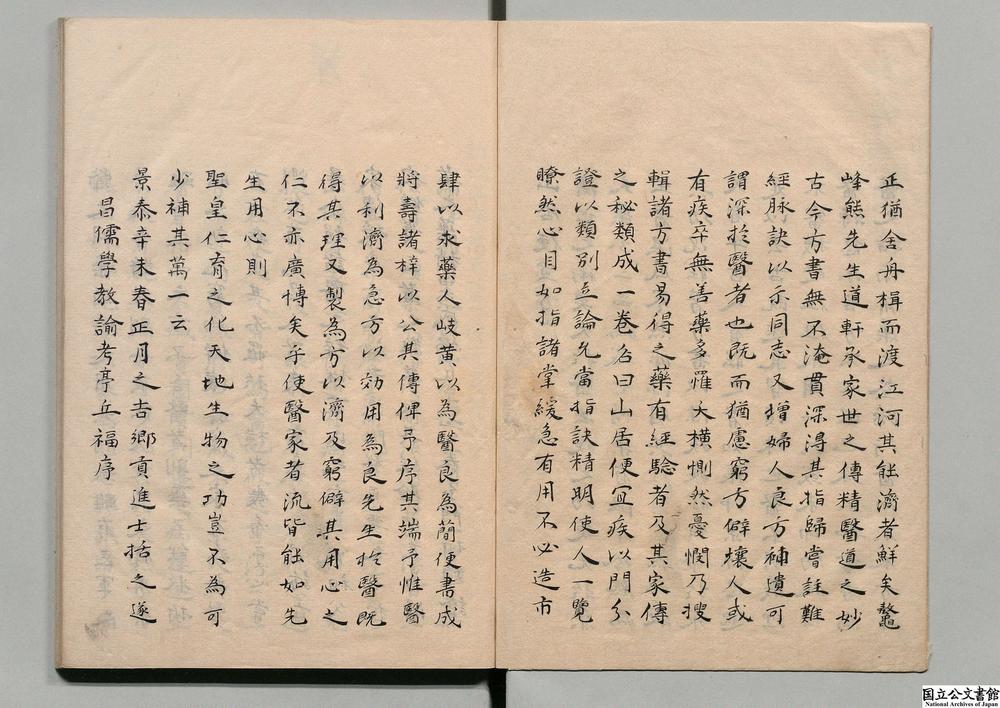 正猶舍舟楫而渡江河其能濟者鮮矣鼇
峰熊先生道軒承家世之傳精醫道之妙
古今方書無不淹貫深淂其指歸嘗註難
經脉訣以示同志又增婦人良方補遺可
謂深於醫者也既而猶慮窮方僻壤人或
有疾卒無善藥多罹夭橫惻然憂憫乃搜
輯諸方書易得之藥有經驗者及其家傳
之秘類成一卷名曰山居便宜疾以門分
證以類別立論允當指訣精明使人一覽
瞭然心目如指諸掌緩急有用不必造市
肆以求藥人岐黃以為醫良為簡便書成
將壽諸梓以公其傳俾予序其端予惟醫
以利濟為急方以効用為良先生於醫既
得其理又製為方以濟及窮僻其用心之
仁不亦廣博矣乎使醫家者流皆能如先
生用心則
聖皇仁育之化天地生物之功豈不為可
少補其萬一云
景泰辛未春正月之吉鄉貢進士括之遂
昌儒學教諭考亭丘福序
国立公文書館
National Archives of Japan